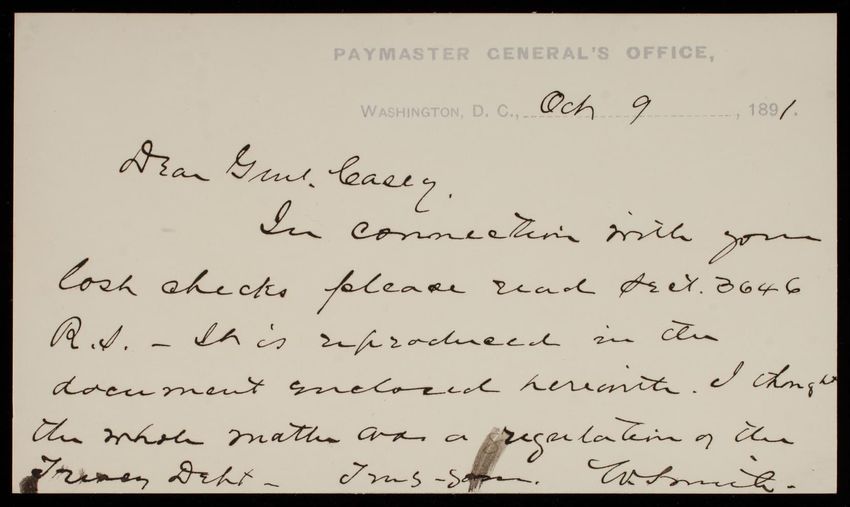 PAYMASTER GENERAL'S OFFICE,
WASHINGTON, D. C., Oct 9, 1891.
Dear Genl. Casey,
In connection with your
lost checks please read Sect. 3646
R.S. - It is reproduced in the
document enclosed herewith. I thought
the whole matter was a regulation of the
Treasy Dept - Truly yours. Wm Smith.